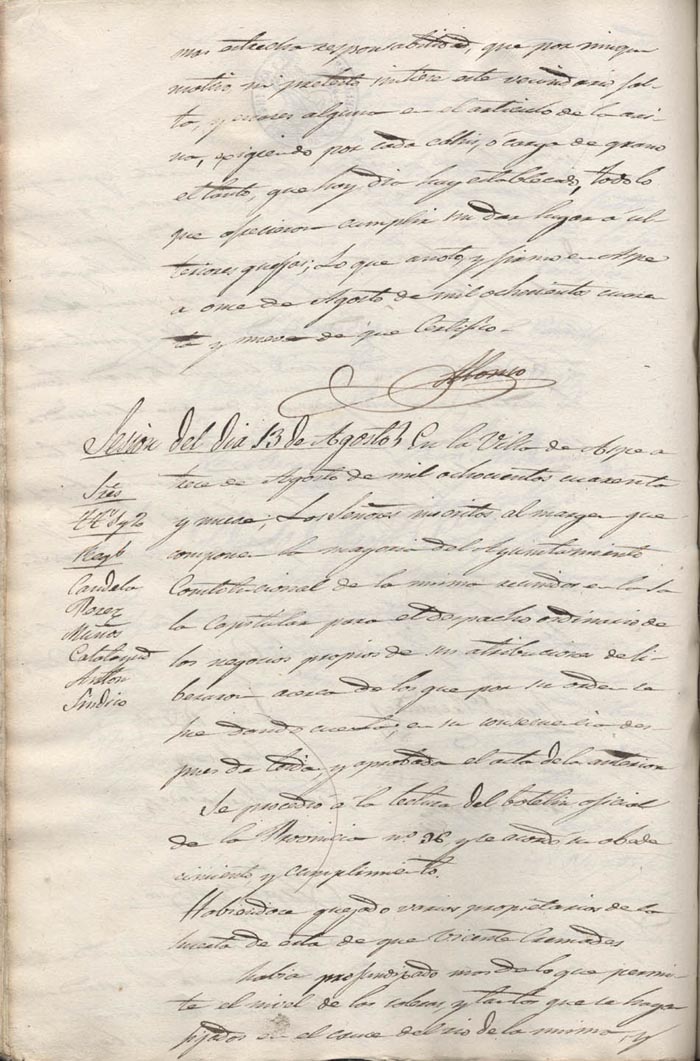 mas estrecha responsabilidad, que por ningun
motivo, ni pretesto sintiese este vecindario fal-
to, y escases alguna en el articulo de la ari-
na, exigiendo por cada cahiz, ó carga de grano
el tanto, que hoy dia hay establecido, todo lo
que ofrecieron cumplir sin dar lugar a ul-
teriores quejas; Lo que anoto y firmo en Aspe
a once de Agosto de mil ochocientos cuaren-
ta y nueve de que Certifico-
Alonso
Sesion del dia 13 de Agosto En la Villa de Aspe a
trece de Agosto de mil ochocientos cuarenta
y nueve; Los Señores inscritos al margen que
componen la mayoria del Ayuntamiento
Constitucional de la misma reunidos en la Sa
la Capitular para el despacho ordinario de
los negocios propios de sus atribuciones deli-
beraron acerca de los que por su orden se
fue dando cuenta, en su consecuencia des-
pues de leida, y aprobada el acta de la anterior
Se procedio a la lectura del boletin oficial
de la Provincia nº 96 y se acordó su obede
cimiento, y cumplimiento.
Habiendose quejado varios propietarios de la
huerta de esta de que Vicente Cremades
habia profundizado mas de lo que permi-
te el nivel de los y tanto que se haya
fijados en el cauce del rio de la misma, y
Sres
Regs
Candela
Perez
Muños
Calatayud
Anton
Sindico